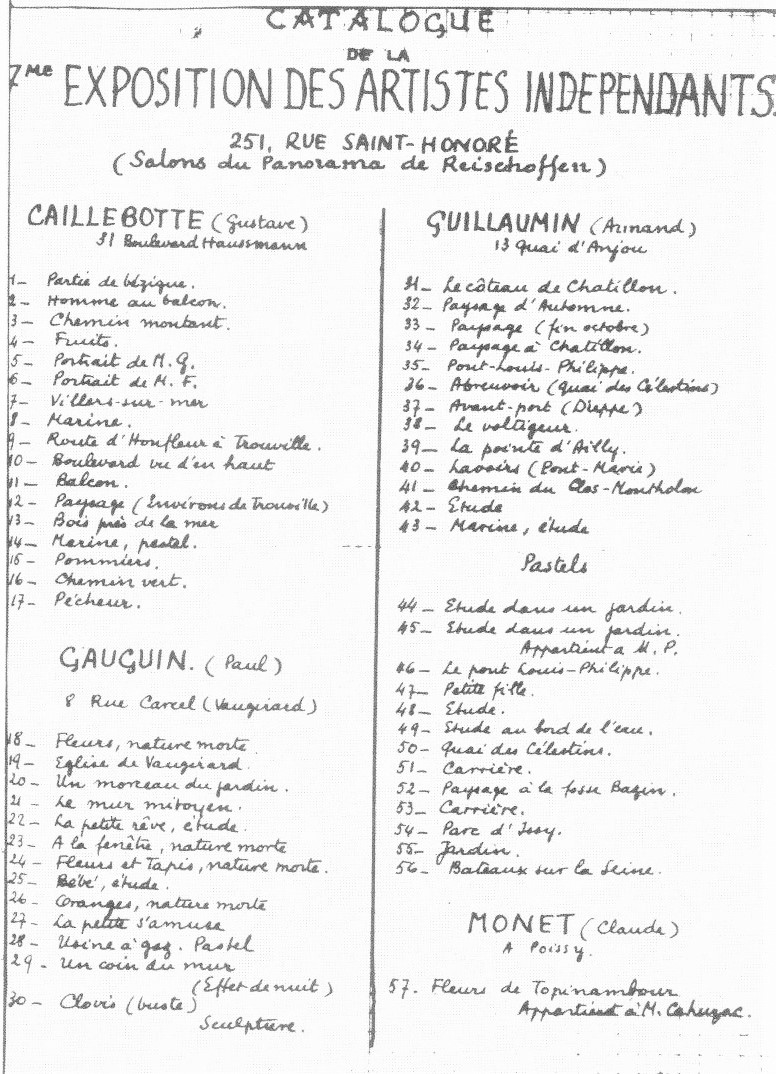 CATALOGUE
DE LA
7me EXPOSITION DES ARTISTES INDEPENDANTS.
251, RUE SAINT-HONORÉ
(Salons du Panorama de Reischoffen)
CAILLEBOTTE (Gustave)
31 Boulevard Haussmann
1- Partie de bézigue.
2- Homme au balcon.
3- Chemin montant.
4- Fruits.
5- Portrait de M. G.
6- Portrait de M. F.
7- Villers-sur-mer
8- Marine.
9- Route d'Honfleur à Trouville.
10- Boulevard vu d'en haut
11- Balcon.
12- Paysage (Environs de Trouville)
13- Bois près de la mer
14- Marine, pastel.
15- Pommiers.
16- Chemin vert.
17- Pêcheur.
GAUGUIN. (Paul)
8 Rue Carcel (Vaugirard)
18- Fleurs, nature morte
19- Eglise de Vaugirard.
20- Un morceau du jardin.
21- Le mur mitoyen.
22- La petite rêve, étude.
23- A la fenêtre, nature morte
24- Fleurs et Tapis, nature morte.
25- Bébé, étude.
26- Oranges, nature morte
27- La petite s'amuse
28- Usine à gaz. Pastel
29- Un coin du mur
(Effet de nuit)
30- Clovis (buste)
Sculpture.
GUILLAUMIN (Armand)
13 Quai d'Anjou
31- Le côteau de Chatillon.
32- Paysage d'Automne.
33- Paysage (fin octobre)
34- Paysage à Chatillon.
35- Pont-Louis-Philippe.
36- Abreuvoir (Quai des Célestins)
37- Avant-port (Dieppe)
38- Le voltigeur.
39- La pointe d'Ailly.
40- Lavoirs (Pont-Marie)
41- Chemin du Clos-Montholon
42- Etude
43- Marine, étude
Pastels
44- Etude dans un jardin.
45- Etude dans un jardin.
Appartient à M. P.
46- Le pont Louis-Philippe.
47- Petite fille.
48- Etude.
49- Etude au bord de l'eau.
50- Quai des Célestins.
51- Carrière.
52- Paysage à la fosse Bazin.
53- Carrière.
54- Parc d'Issy.
55- Jardin.
56- Bateaux sur la Seine.
MONET (Claude)
A Poissy.
57. Fleurs de Topinambour
Appartient à M. Cahuzac.